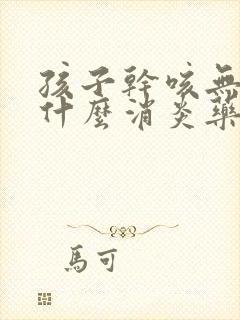 孩子幹咳無
什麼消炎藥
馬可